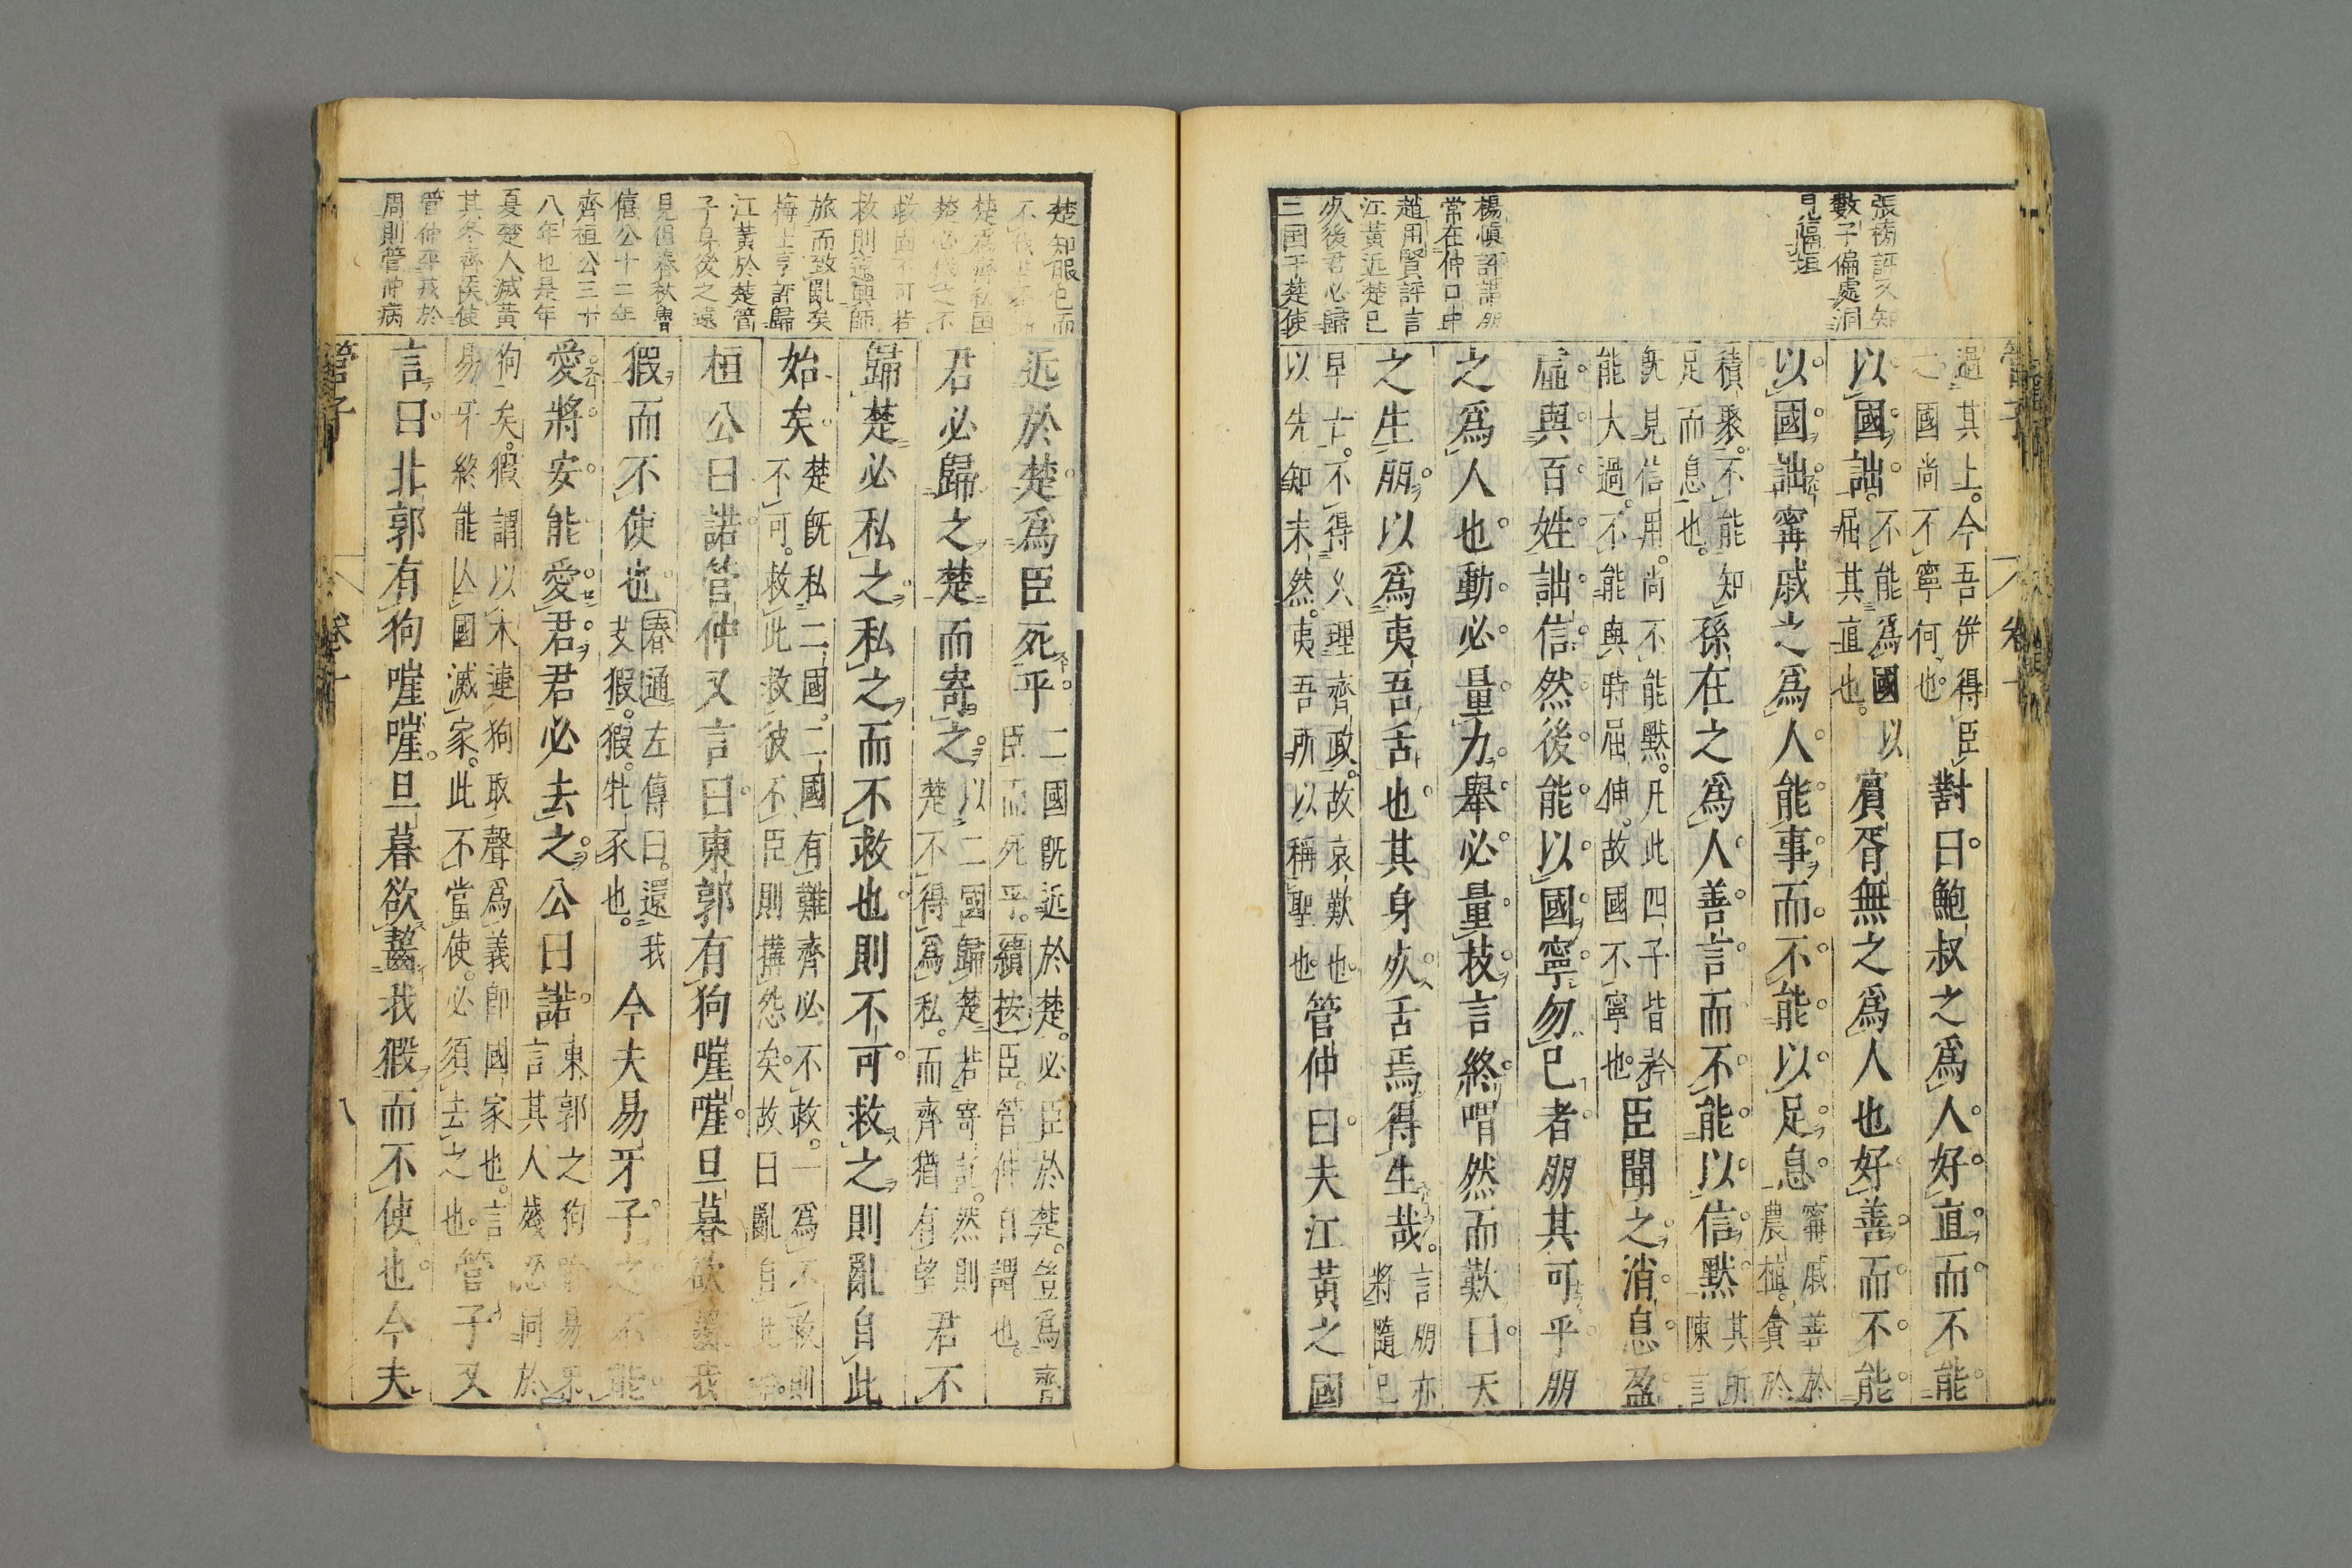 張榜評又知
數子偏處洞
見癥垣
楊慎評謂朋
常在仲口中
趙用賢評言
江黃近楚已
歿後君必歸
二国于楚使
管子
卷十
過其上。今吾併得臣
之國尚不寧何也。
對曰。鮑叔之爲人。好直。而不能
以國詘。
不能爲國
屈其直也。
以賓胥無之爲人也好善而不能
以國詘。寗戚之爲人。能事。而不能以足息。
寗戚善於
農植。貪於
積聚。不能知
足而息也。
孫在之爲人。善言而不能以信默。
其所
陳言
既見信用。尚不能默。凡此四子皆矜
能大過。不能與時屈伸。故國不寧也。
臣聞之。消息。盈
虛。與百姓詘信。然後能以國寧。勿已者朋其可乎朋
之爲人也。動必量力。舉必量技。言終。喟然而歎曰。天
之生朋。以爲夷吾舌也。其身死。舌焉得生哉。
言朋亦
將隨己
早亡。不得乆理齊政。故哀歎也。
以先知未然。夷吾所以稱聖也。
管仲曰。夫江黃之國
楚知服也而
楚必伐之不
救則違與師
旅而致亂矣
梅士亨評歸
江黃於楚管
子身後之遠
見但春秋魯
僖公十二年
齊桓公三十
八年也是年
夏楚人滅黃
其冬齊侯使
管仲平戎於
周則管仲病
近於楚。爲臣死乎。
二國既近於楚。必臣於楚。豈爲齊
臣而死乎。續按臣。管仲自謂也。
君必歸之楚而寄之。
以二國歸楚。若寄託。然則
楚不得爲私。而齊猶有望
君不
歸楚必私之。私之而不救也。則不可。救之則亂自此
始矣。
楚既私二國。二國有難齊必不救。一爲不救則
不可。救此救彼不臣則搆怨矣。故曰亂自此
桓公曰諾。管仲又言曰。東郭有狗嘊嘊。旦暮欲齧我
猳而不使也
春通左傳曰。還我
艾猳。猳。牡豕也。
今夫易牙子。之不能
愛將安能愛君。君必去之。公曰諾。
東郭之狗喻易牙
言其人殘忍同於
狗矣。猳謂以木連狗取聲爲義即國家也。言
易牙終能亾國滅家。此不當使。必須去之也。
管子又
言曰。北郭有狗嘊嘊。旦暮欲齧我猳而不使也。今夫
管子
卷十
八